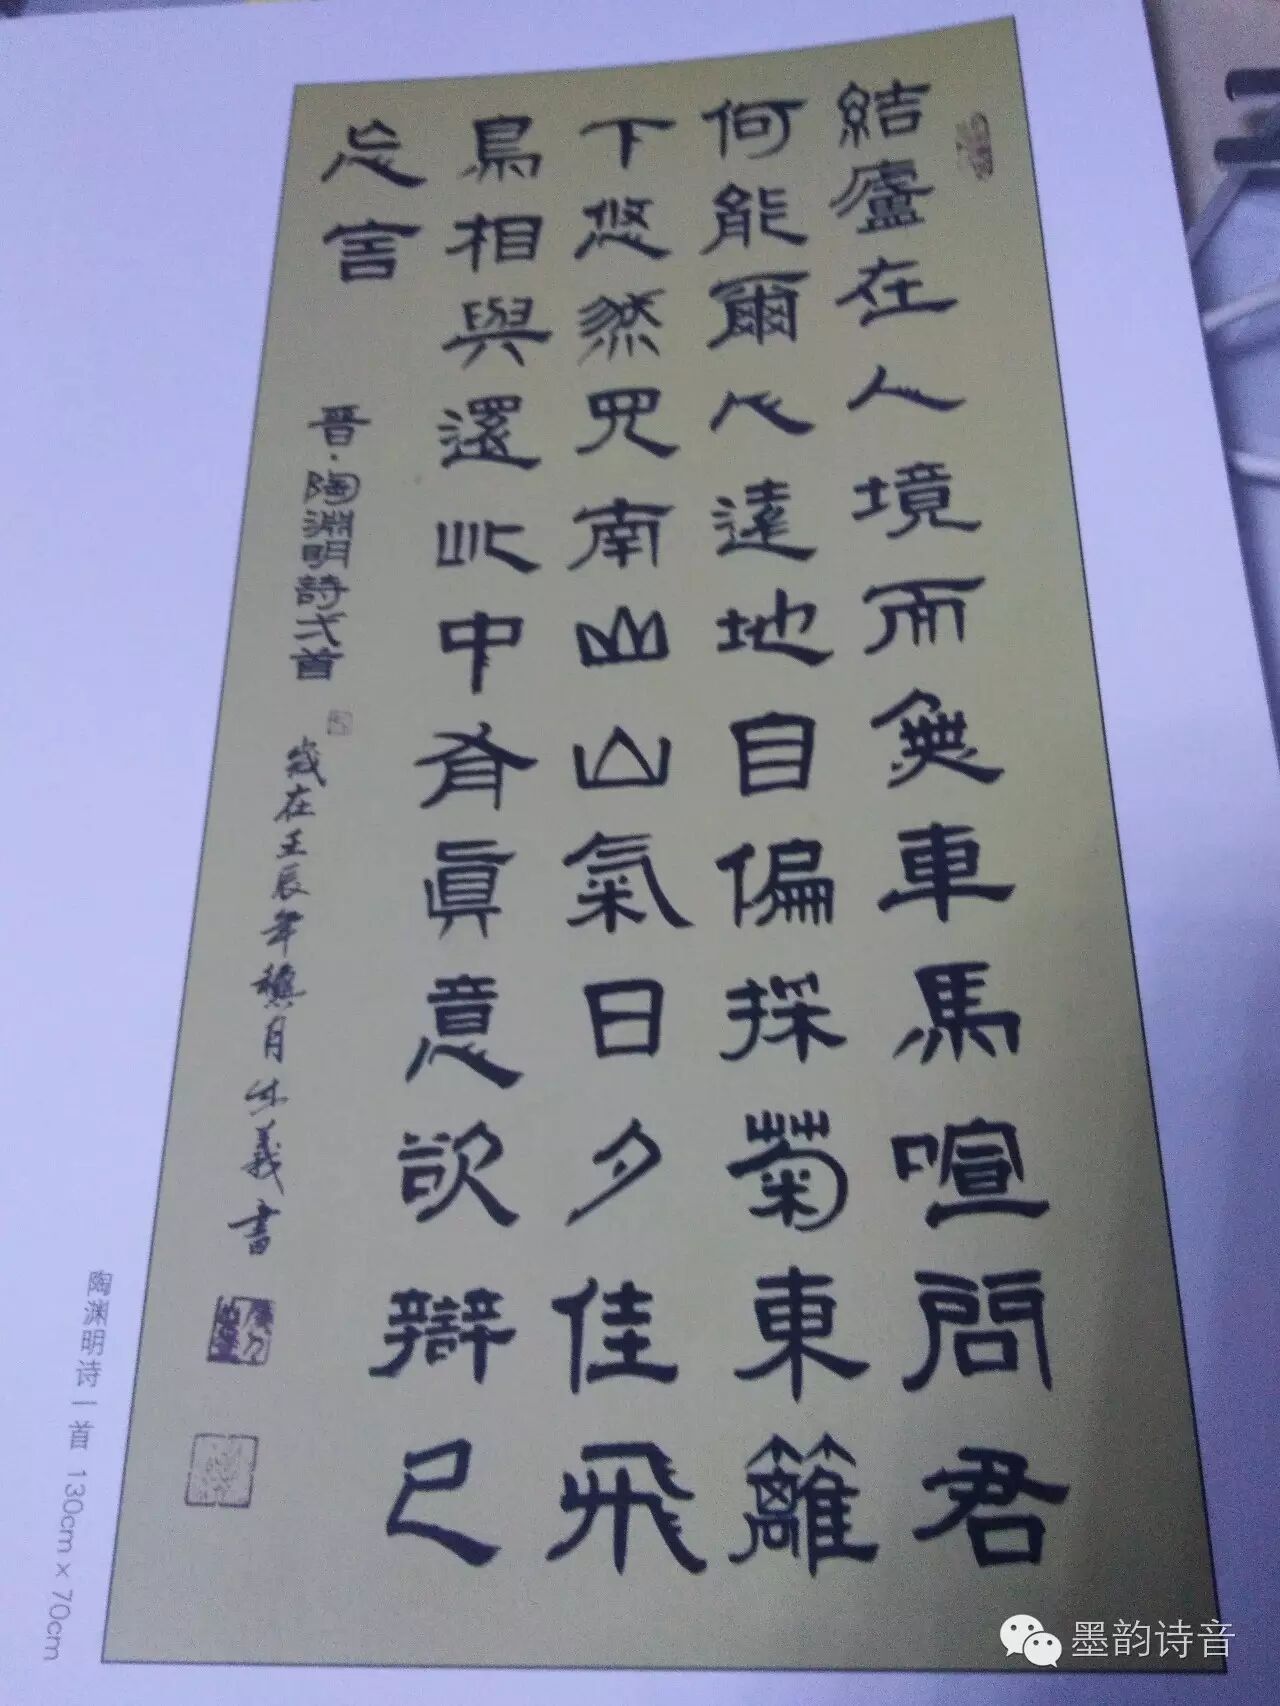 結廬在人境而無車馬喧問君
何能爾心遠地自偏採菊東籬
下悠然見南山山氣日夕佳飛
鳥相與還此中有眞意欲辯已
忘言
晋·陶淵明詩弌首
歲在壬辰年月義書
陶渊明诗一首 130cm×70cm
墨韵诗音